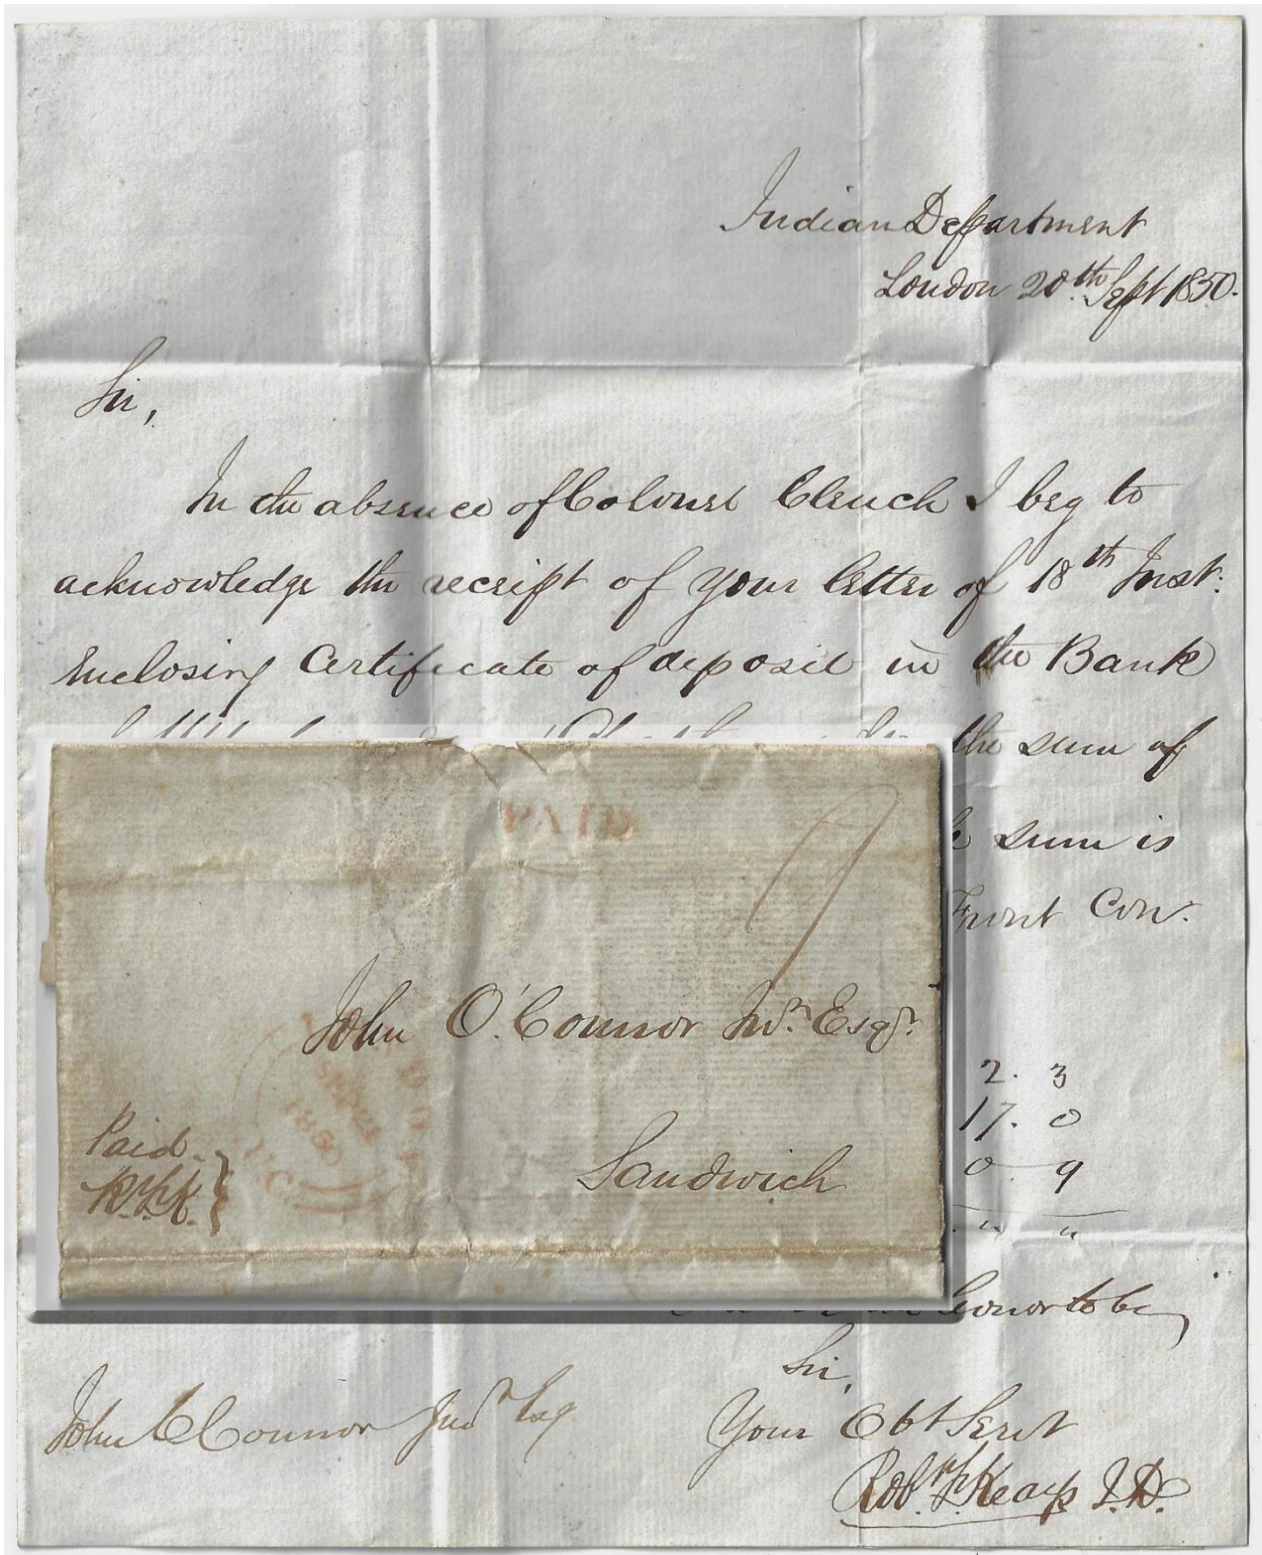 Indian Department
London 20th Sept 1850.
Sir,
In the absence of Colonel Clench I beg to
acknowledge the receipt of your letter of 18th Inst.
Enclosing Certificate of deposit in the Bank
the sum of
sum is
Front Con.
PAID
John O'Connor Jnr. Esqr.
Sandwich
Paid
1850
2. 3
17. 0
0 9
" "
honor to be,
Sir,
Your Obt Servt
John O'Connor Junr Esq